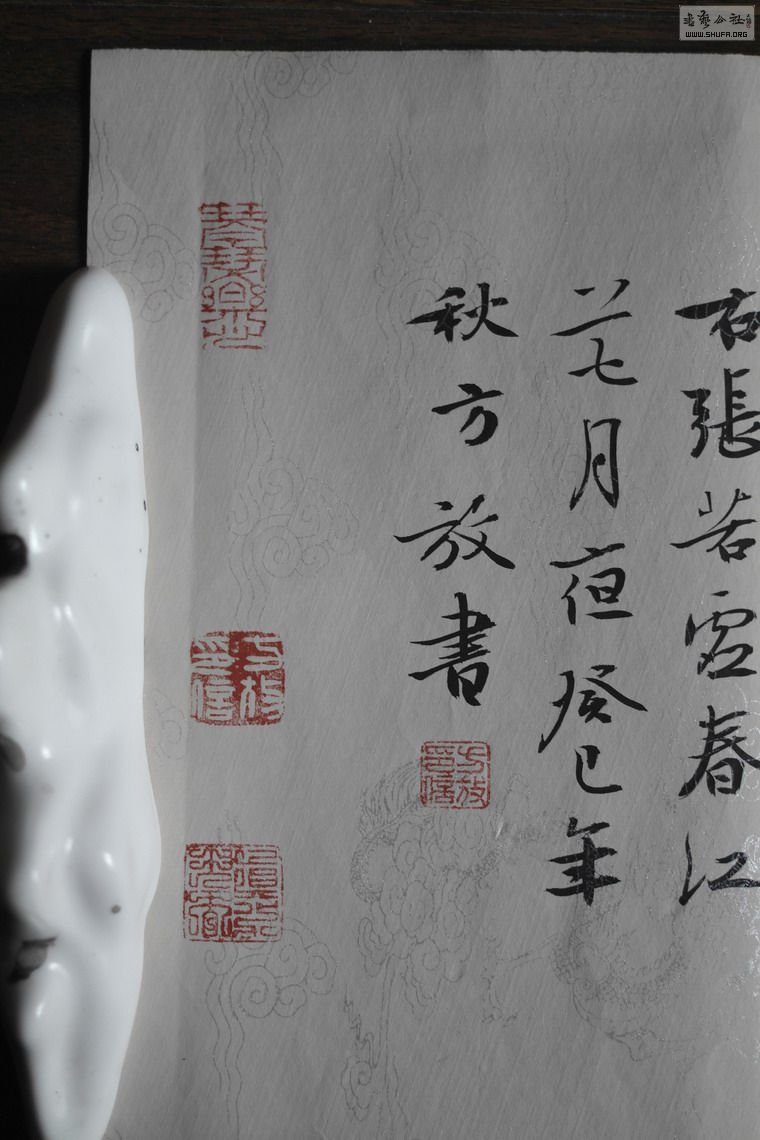 右張若虛春江
花月夜癸巳年
秋方放書
方放印信
方放印信
書藝公社
WWW.SHUFA.ORG